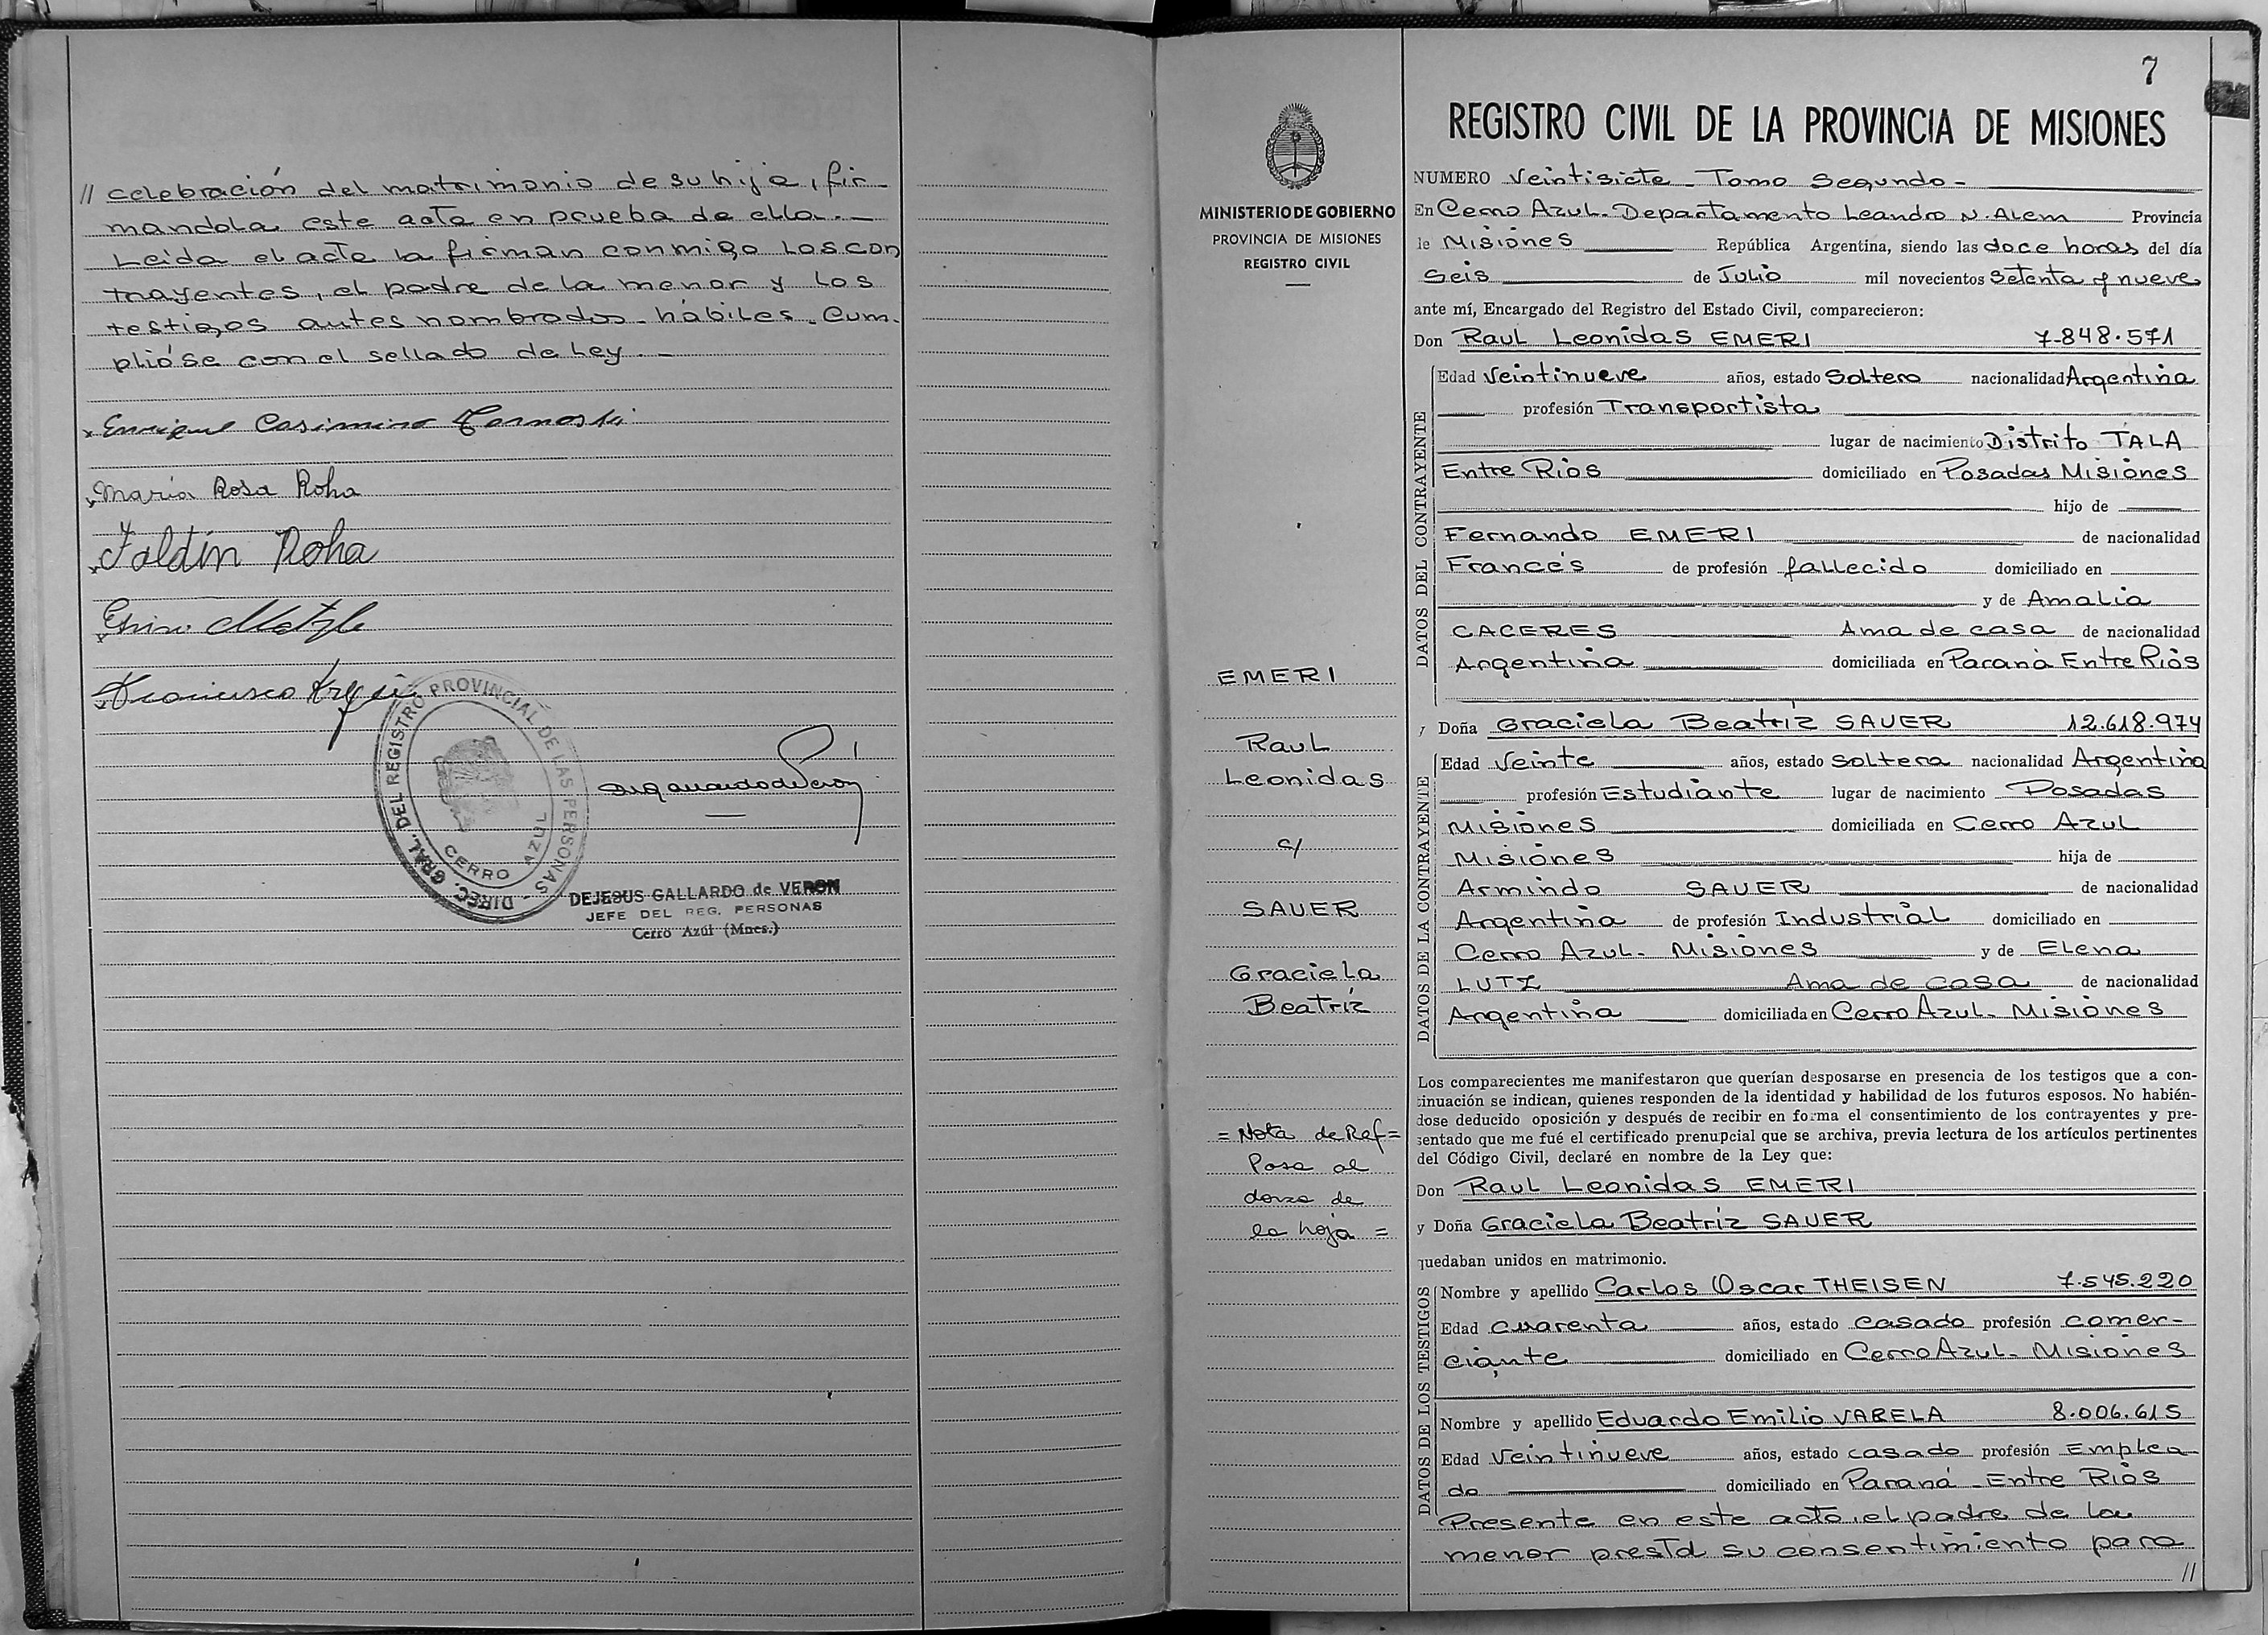 // celebración del matrimonio de su hija, fir-
mandola este acta en prueba de ello.—
Leida el acta la firman conmigo los con
trayentes, el padre de la menor y los
testigos antes nombrados hábiles. Cum-
plióse con el sellado de Ley.—
Enrique Casimiro
Maria Rosa Roha
Roha
Francisco
DIREC. GRAL. DEL REGISTRO PROVINCIAL DE LAS PERSONAS
CERRO AZUL
DEJESUS GALLARDO de VERON
JEFE DEL REG. PERSONAS
Cerro Azúl (Mnes.)
MINISTERIO DE GOBIERNO
PROVINCIA DE MISIONES
REGISTRO CIVIL
EMERI
Raul
Leonidas
c/
SAUER
Graciela
Beatríz
= Nota de Ref=
Pasa al
dorso de
la hoja =
7
REGISTRO CIVIL DE LA PROVINCIA DE MISIONES
NUMERO Veintisiete - Tomo Segundo -
En Cerro Azul. Departamento Leandro N. Alem Provincia
de Misiones República Argentina, siendo las doce horas del día
Seis de Julio mil novecientos Setenta y nueve
ante mí, Encargado del Registro del Estado Civil, comparecieron:
Don Raul Leonidas EMERI 7.848.571
DATOS DEL CONTRAYENTE
Edad Veintinueve años, estado Soltero nacionalidad Argentina
profesión Transportista
lugar de nacimiento Distrito TALA
Entre Ríos domiciliado en Posadas Misiones
hijo de
Fernando EMERI de nacionalidad
Francés de profesión fallecido domiciliado en
y de Amalia
CACERES Ama de casa de nacionalidad
Argentina domiciliada en Paraná Entre Ríos
y Doña Graciela Beatríz SAUER 12.618.974
DATOS DE LA CONTRAYENTE
Edad Veinte años, estado Soltera nacionalidad Argentina
profesión Estudiante lugar de nacimiento Posadas
Misiones domiciliada en Cerro Azul
Misiones hija de
Armindo SAUER de nacionalidad
Argentina de profesión Industrial domiciliado en
Cerro Azul. Misiones y de Elena
LUTZ Ama de casa de nacionalidad
Argentina domiciliada en Cerro Azul. Misiones
Los comparecientes me manifestaron que querían desposarse en presencia de los testigos que a con-
tinuación se indican, quienes responden de la identidad y habilidad de los futuros esposos. No habién-
dose deducido oposición y después de recibir en forma el consentimiento de los contrayentes y pre-
sentado que me fué el certificado prenupcial que se archiva, previa lectura de los artículos pertinentes
del Código Civil, declaré en nombre de la Ley que:
Don Raul Leonidas EMERI
y Doña Graciela Beatríz SAUER
quedaban unidos en matrimonio.
DATOS DE LOS TESTIGOS
Nombre y apellido Carlos Oscar THEISEN 7.545.220
Edad cuarenta años, estado casado profesión comer-
ciante domiciliado en Cerro Azul. Misiones
Nombre y apellido Eduardo Emilio VARELA 8.006.615
Edad Veintinueve años, estado casado profesión Emplea
do domiciliado en Paraná - Entre Ríos
Presente en este acto, el padre de la
menor presta su consentimiento para
//